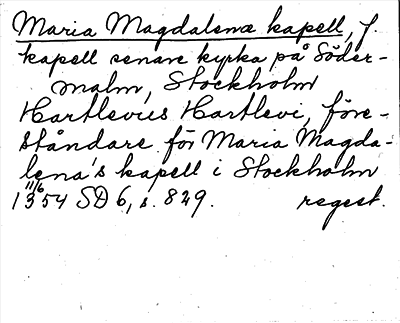 Maria Magdalenæ kapell, f.
kapell senare kyrka på Söder-
malm, Stockholm
Hartlevus Hartlevi, före-
ståndare för Maria Magda-
lena's kapell i Stockholm
11/6
1354 SD 6, s. 829. regest.